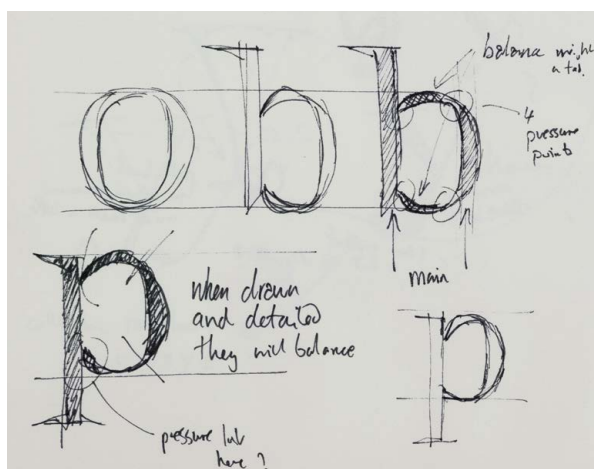 o b b
balance might
a tad.
4
pressure
points
main
p
when drawn
and detailed
they will balance
p
pressure
here ?